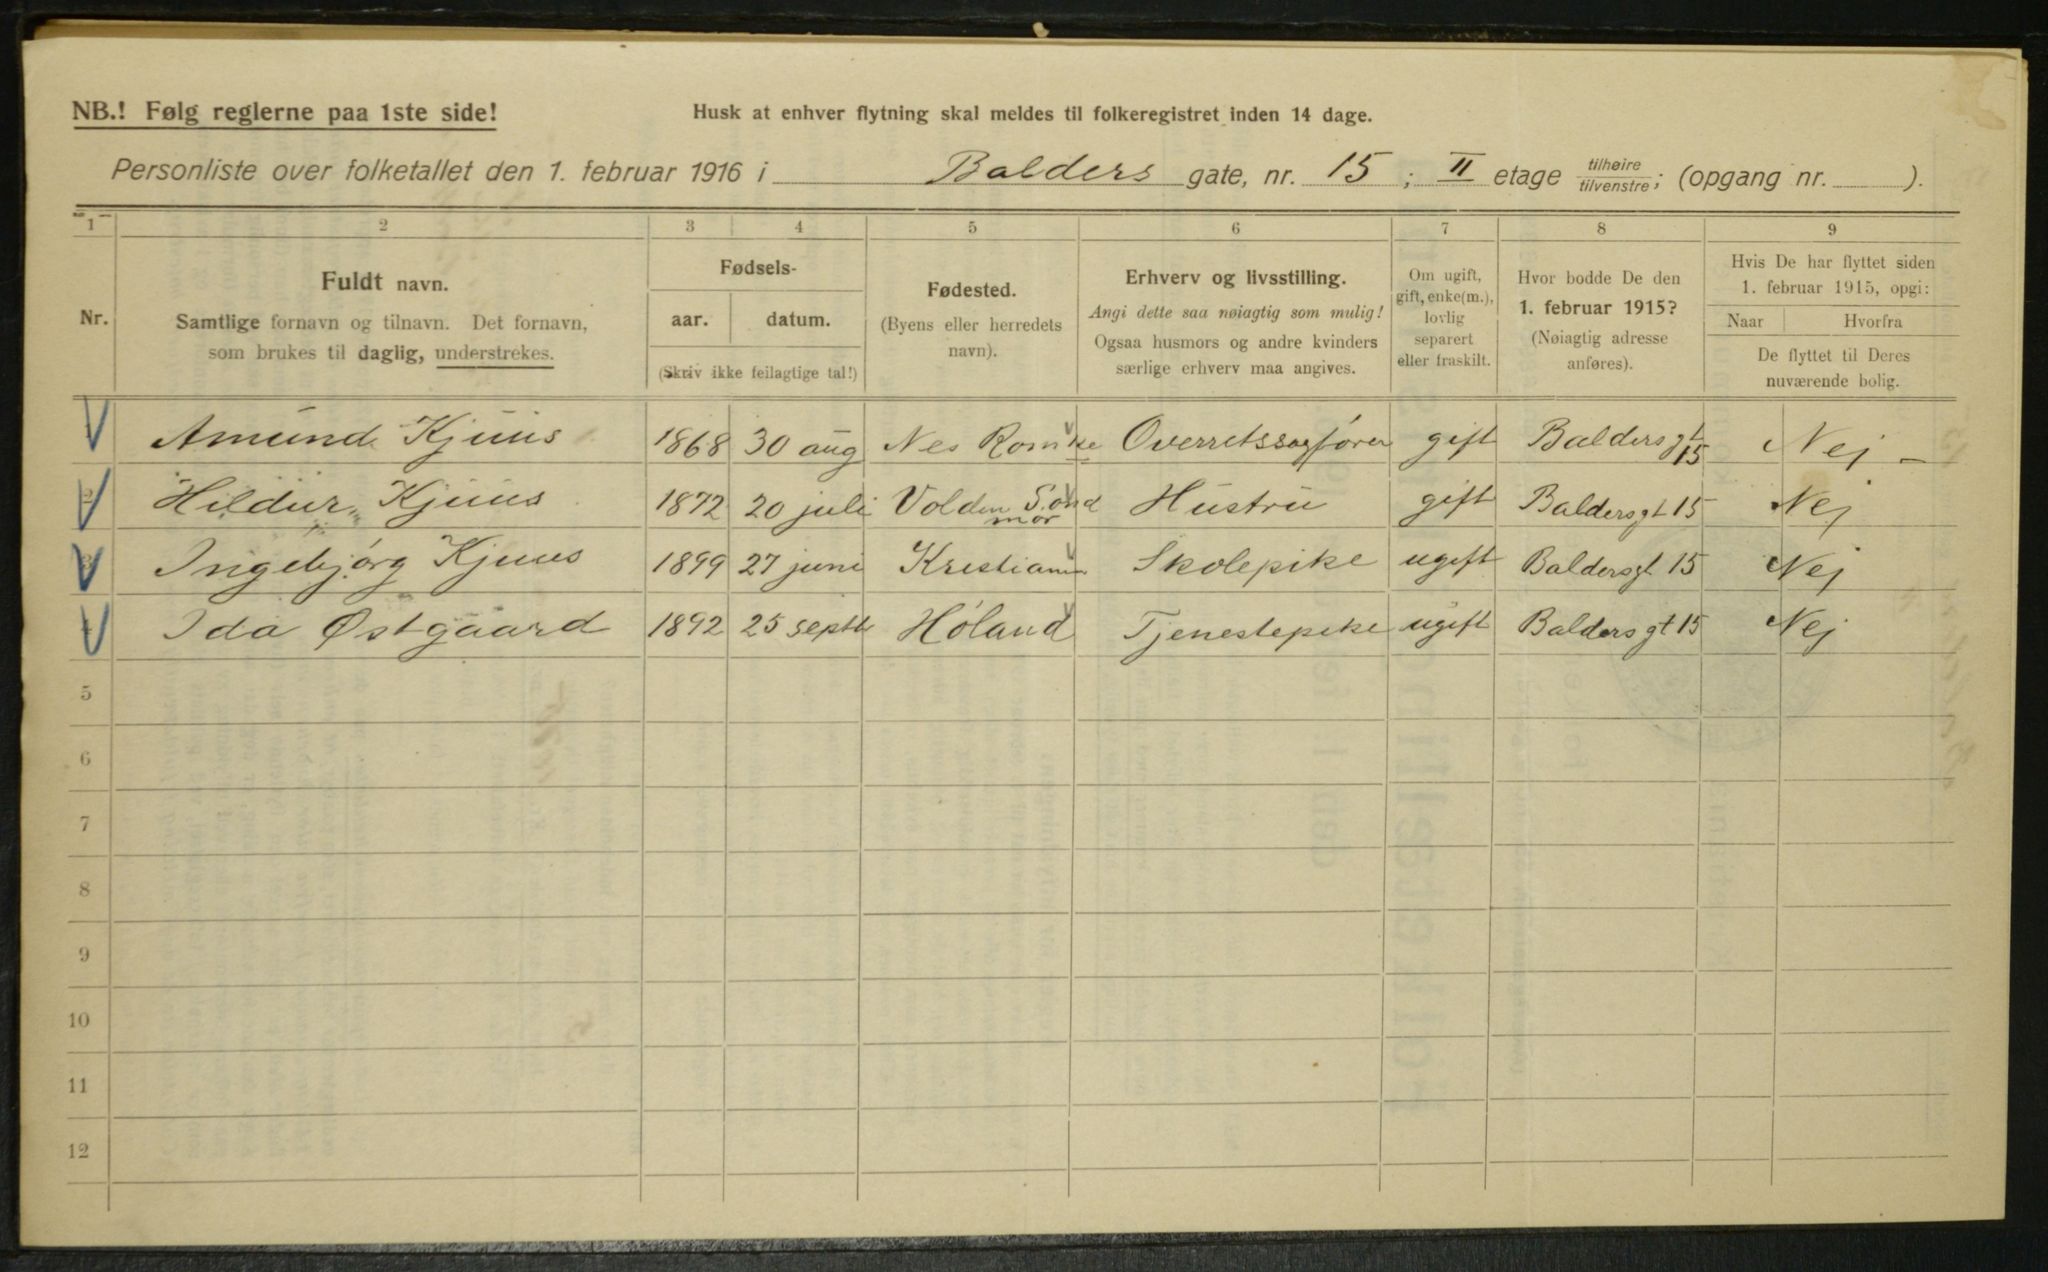 NB.! Følg reglerne paa 1ste side!
Husk at enhver flytning skal meldes til folkeregistret inden 14 dage.
Personliste over folketallet den 1. februar 1916 i Balders gate, nr. 15 ; II etage tilhøire/tilvenstre; (opgang nr. ).
1 2 3 4 5 6 7 8 9
Nr.
Fuldt navn.
Samtlige fornavn og tilnavn. Det fornavn,
som brukes til daglig, understrekes.
Fødsels-
aar. datum.
(Skriv ikke feilagtige tal!)
Fødested.
(Byens eller herredets
navn).
Erhverv og livsstilling.
Angi dette saa nøiagtig som mulig!
Ogsaa husmors og andre kvinders
særlige erhverv maa angives.
Om ugift,
gift, enke(m.),
lovlig
separert
eller fraskilt.
Hvor bodde De den
1. februar 1915?
(Nøiagtig adresse
anføres).
Hvis De har flyttet siden
1. februar 1915, opgi:
Naar Hvorfra
De flyttet til Deres
nuværende bolig.
1 Amund Kjuus 1868 30 aug Nes Romike Overretssagfører gift Baldersgt 15 Nej –
2 Hildur Kjuus 1872 20 juli Volden Sønd mør Hustru gift Baldersgt 15 Nej
3 Ingebjørg Kjuus 1899 27 juni Kristiania Skolepike ugift Baldersgt 15 Nej
4 Ida Østgaard 1892 25 septb Høland Tjenestepike ugift Baldersgt 15 Nej
5
6
7
8
9
10
11
12